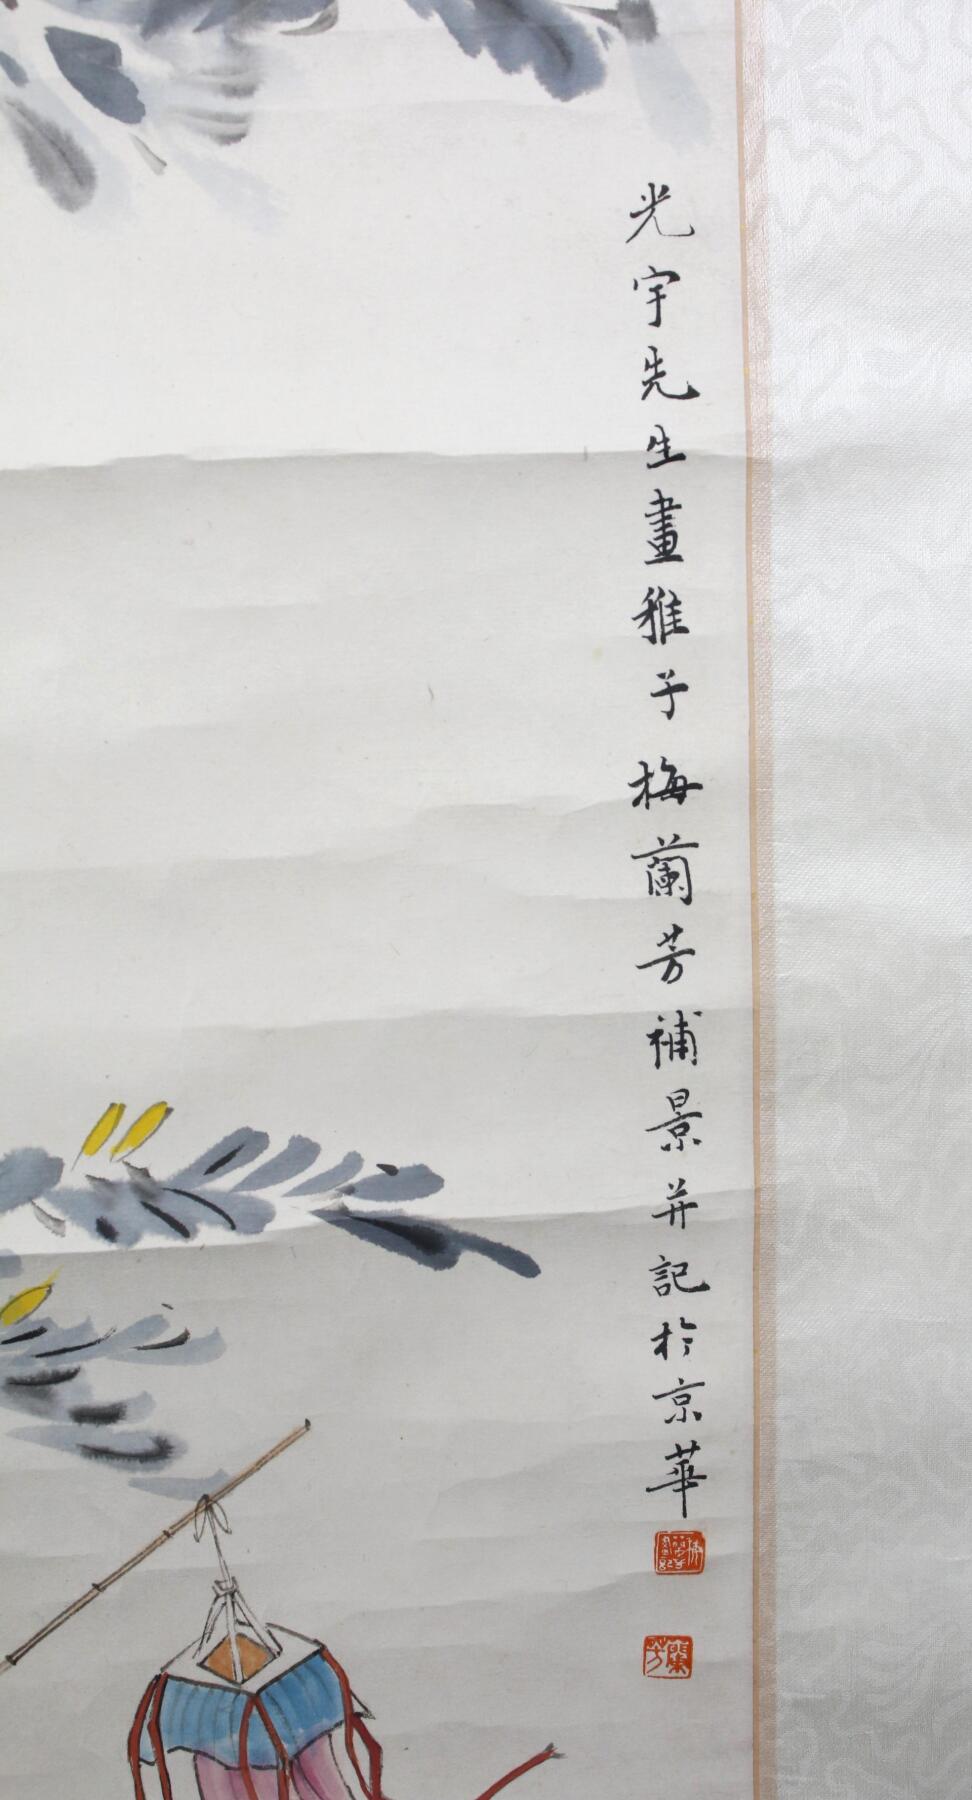 光宇先生畫雅子梅蘭芳補景并記於京華
蘭芳